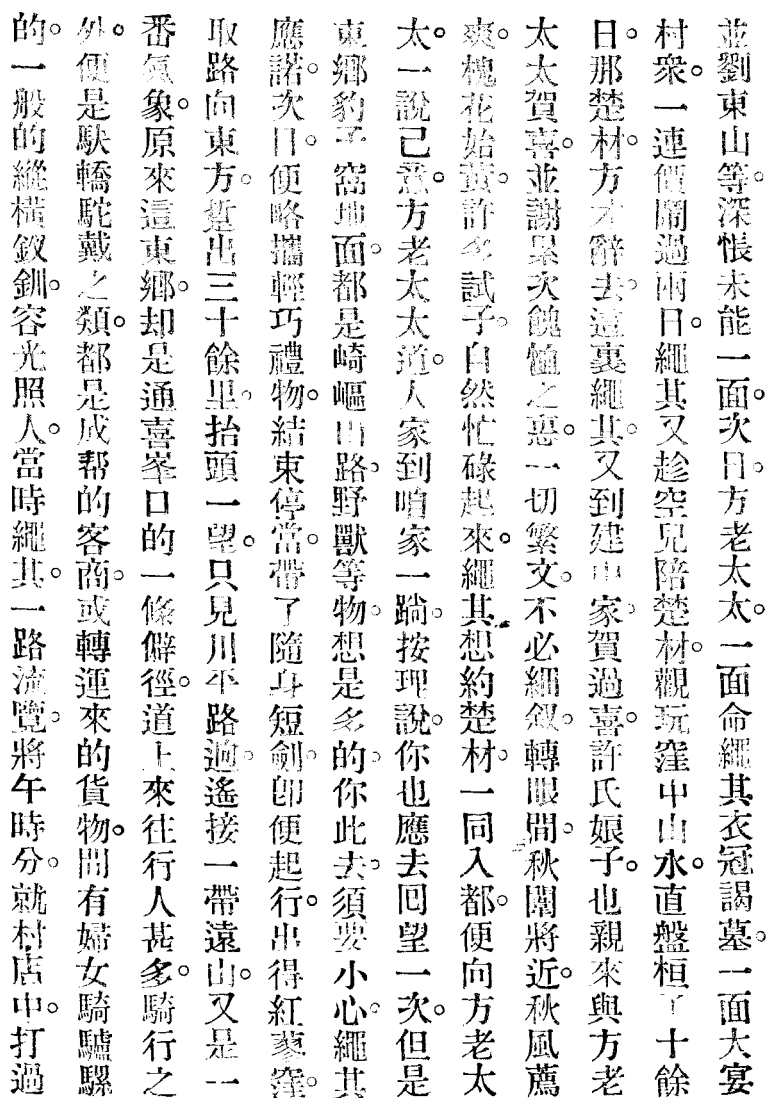 並劉東山等。深悵未能一面。次日。方老太太。一面命繩其衣冠謁墓。一面大宴
村衆。一連價鬧過兩日。繩其又趁空兒陪楚材。觀玩窪中山水。直盤桓了十餘
日。那楚材。方才辭去。這裏繩其。又到建中家。賀過喜。許氏娘子。也親來與方老
太太賀喜。並謝累次餽恤之惠。一切繁文。不必細叙。轉眼間。秋闈將近。秋風薦
爽。槐花始黃。許多試子。自然忙碌起來。繩其想約楚材。一同入都。便向方老太
太。一說己意。方老太太道。人家到咱家一蹦。按理說。你也應去回望一次。但是
東鄉豹子窩地面。都是崎嶇山路。野獸等物。想是多的。你此去。須要小心。繩其
應諾。次日。便略攜輕巧禮物。結束停當。帶了隨身短劍。卽便起行。出得紅蓼窪。
取路向東方。踅出三十餘里。抬頭一望。只見川平路迥。遙接一帶遠山。又是一
番氣象。原來這東鄉。却是通喜峯口的一條僻徑。道上來往行人甚多。騎行之
外。便是馱轎駝戴之類。都是成帮的客商。或轉運來的貨物。間有婦女騎驢騾
的。一般的縱橫釵釧。容光照人。當時繩其。一路流覽。將午時分。就村店中。打過